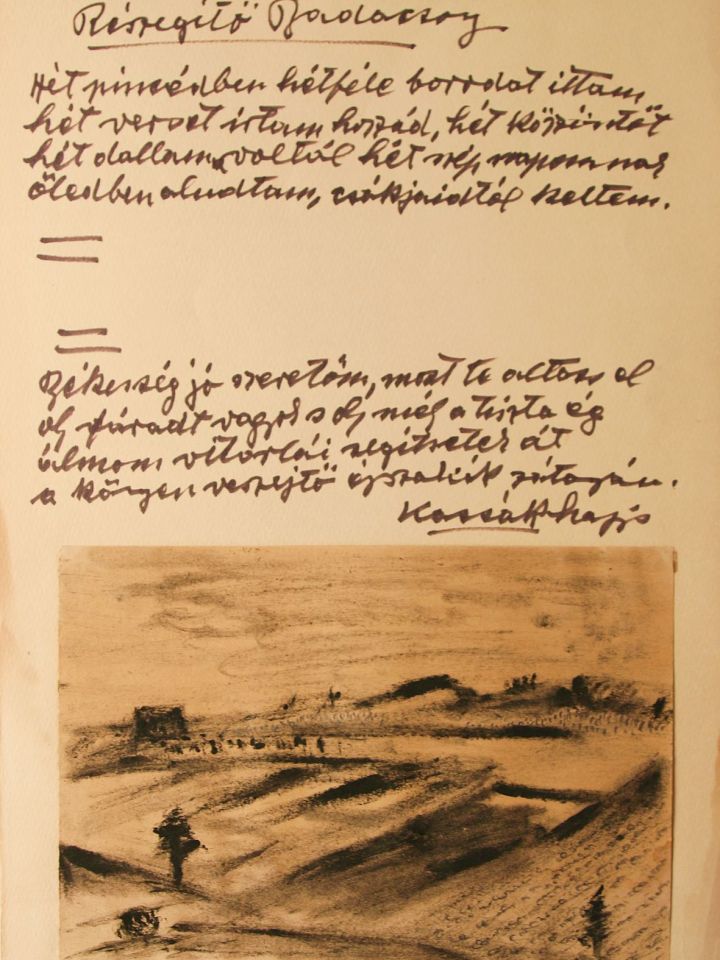 Részegítő Badacsony
Hét pincédben hétféle borodat ittam
hét verset írtam hozzád, hét köszöntőt
hét dallam voltál hét szép napomnak
öledben aludtam, csókjaidtól keltem.
Békesség jó szeretőm, most te altass el
oly fáradt vagyok s oly mély a tiszta ég
álmom vitorlái segítsetek át
a könnyen veszejtő éjszakák zátonyán.
Kassák Lajos